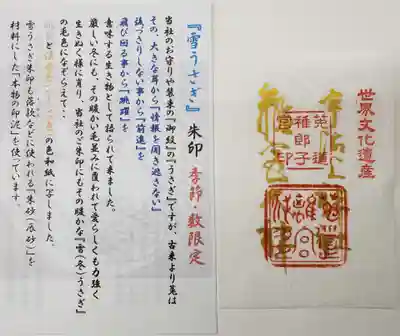 『雪うさぎ』朱印 季節・数限定
当社のお守りや装束の「御紋」の『うさぎ』ですが、古来より兎は
その、大きな耳から「情報を聞き逃さない」
後づさりしない事から「前進」を
飛び回る事から「跳躍」を
意味する生き物として語られて来ました。
厳しい冬にも、その暖かい毛並みに覆われて愛らしくも力強く
生きぬく様に肖り、当社のご朱印にもその暖かな『雪(冬)うさぎ』
の毛色になぞらえて・・
色和紙に写しました。
雪うさぎ朱印も落款などに使われる『朱砂(辰砂)』を
材料にした「本物の印泥」を使っています。
世界文化遺産
菟道
稚郎子
宮印
離宮